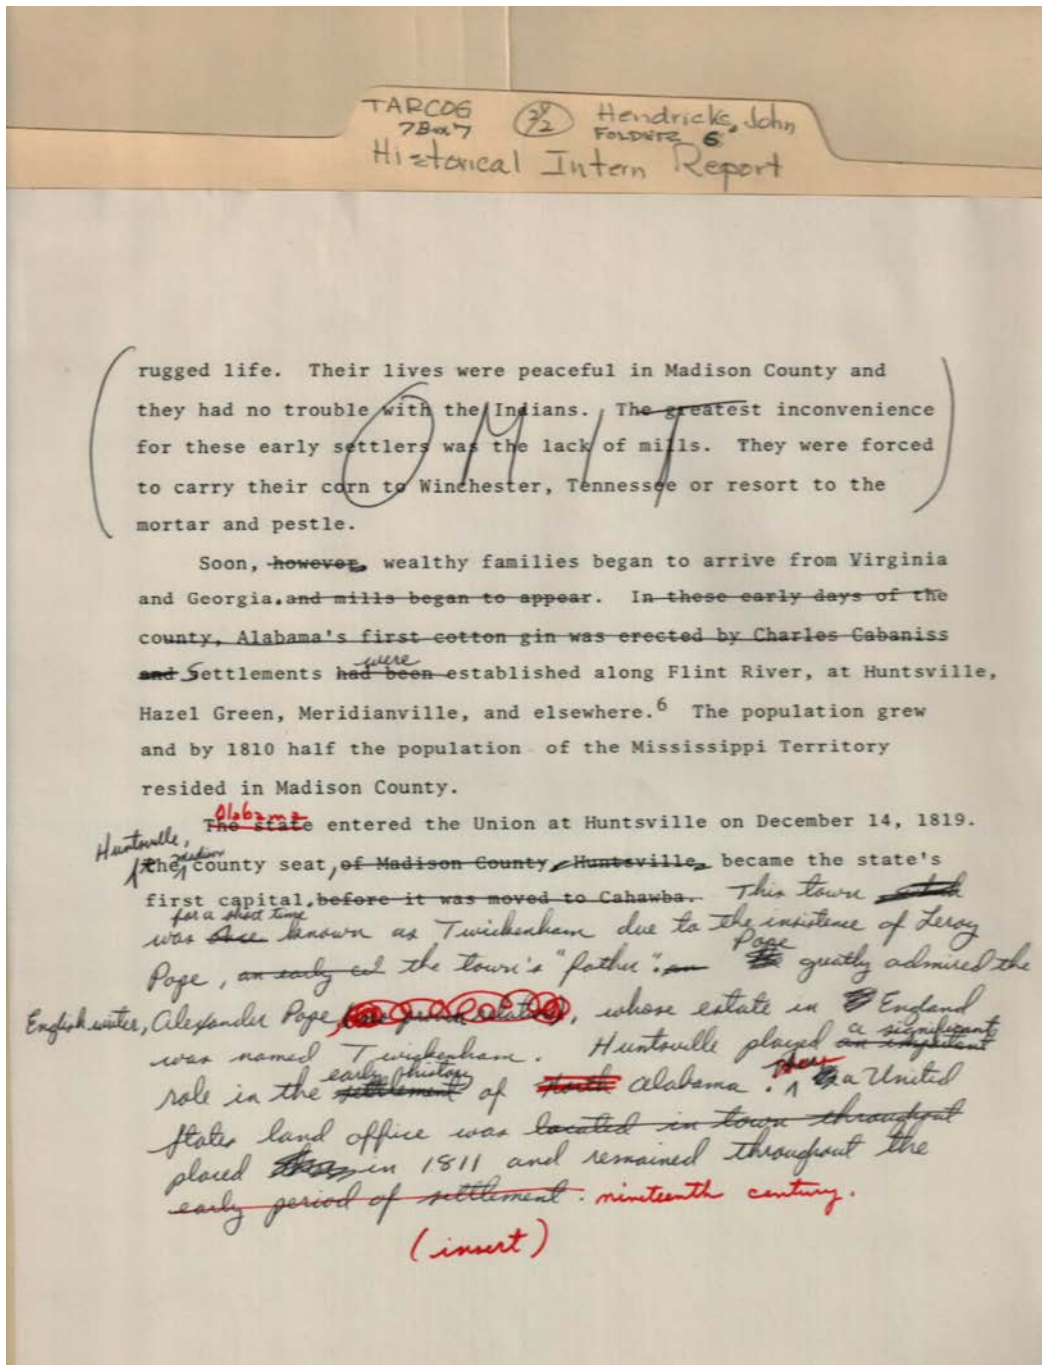 TARCOG
7Box7
Hendricks, John
FOLDER 6
Historical Intern Report
rugged life. Their lives were peaceful in Madison County and
they had no trouble with the Indians. The greatest inconvenience
for these early settlers was the lack of mills. They were forced
to carry their corn to Winchester, Tennessee or resort to the
mortar and pestle.
OMIT
Soon, however, wealthy families began to arrive from Virginia
and Georgia. and mills began to appear. In these early days of the
county, Alabama's first cotton gin was erected by Charles Cabaniss
were
and Settlements had been established along Flint River, at Huntsville,
Hazel Green, Meridianville, and elsewhere.6 The population grew
and by 1810 half the population of the Mississippi Territory
resided in Madison County.
Alabama
The state entered the Union at Huntsville on December 14, 1819.
Huntsville,
Madison
the county seat, of Madison County, Huntsville, became the state's
first capital, before it was moved to Cahawba. This town
for a short time
was known as Twickenham due to the insistence of Leroy
Pope
Pope, an early the town's "father". greatly admired the
English writer, Alexander Pope, whose estate in England
a significant
was named Twickenham. Huntsville played an important
early history
role in the settlement of north Alabama. a United
States land office was located in town throughout
placed in 1811 and remained throughout the
early period of settlement. nineteenth century.
(insert)